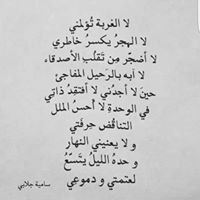 لا الغربة تُؤلمني
لا الهجرُ يكسرُ خاطري
لا أضجّر مِن تَقلُبِ الأصدقاء
لا آبه بالرَحيل المفاجئ
حينَ لا أجدُني لا أفتقِدُ ذاتي
في الوحدةِ لا أُحسُ الملل
التناقُض حِرفَتي
و لا يعنيني النهار
وحدهُ الليلُ يتَسّعُ
لعَتمتي و دموعي
سامية جلابي